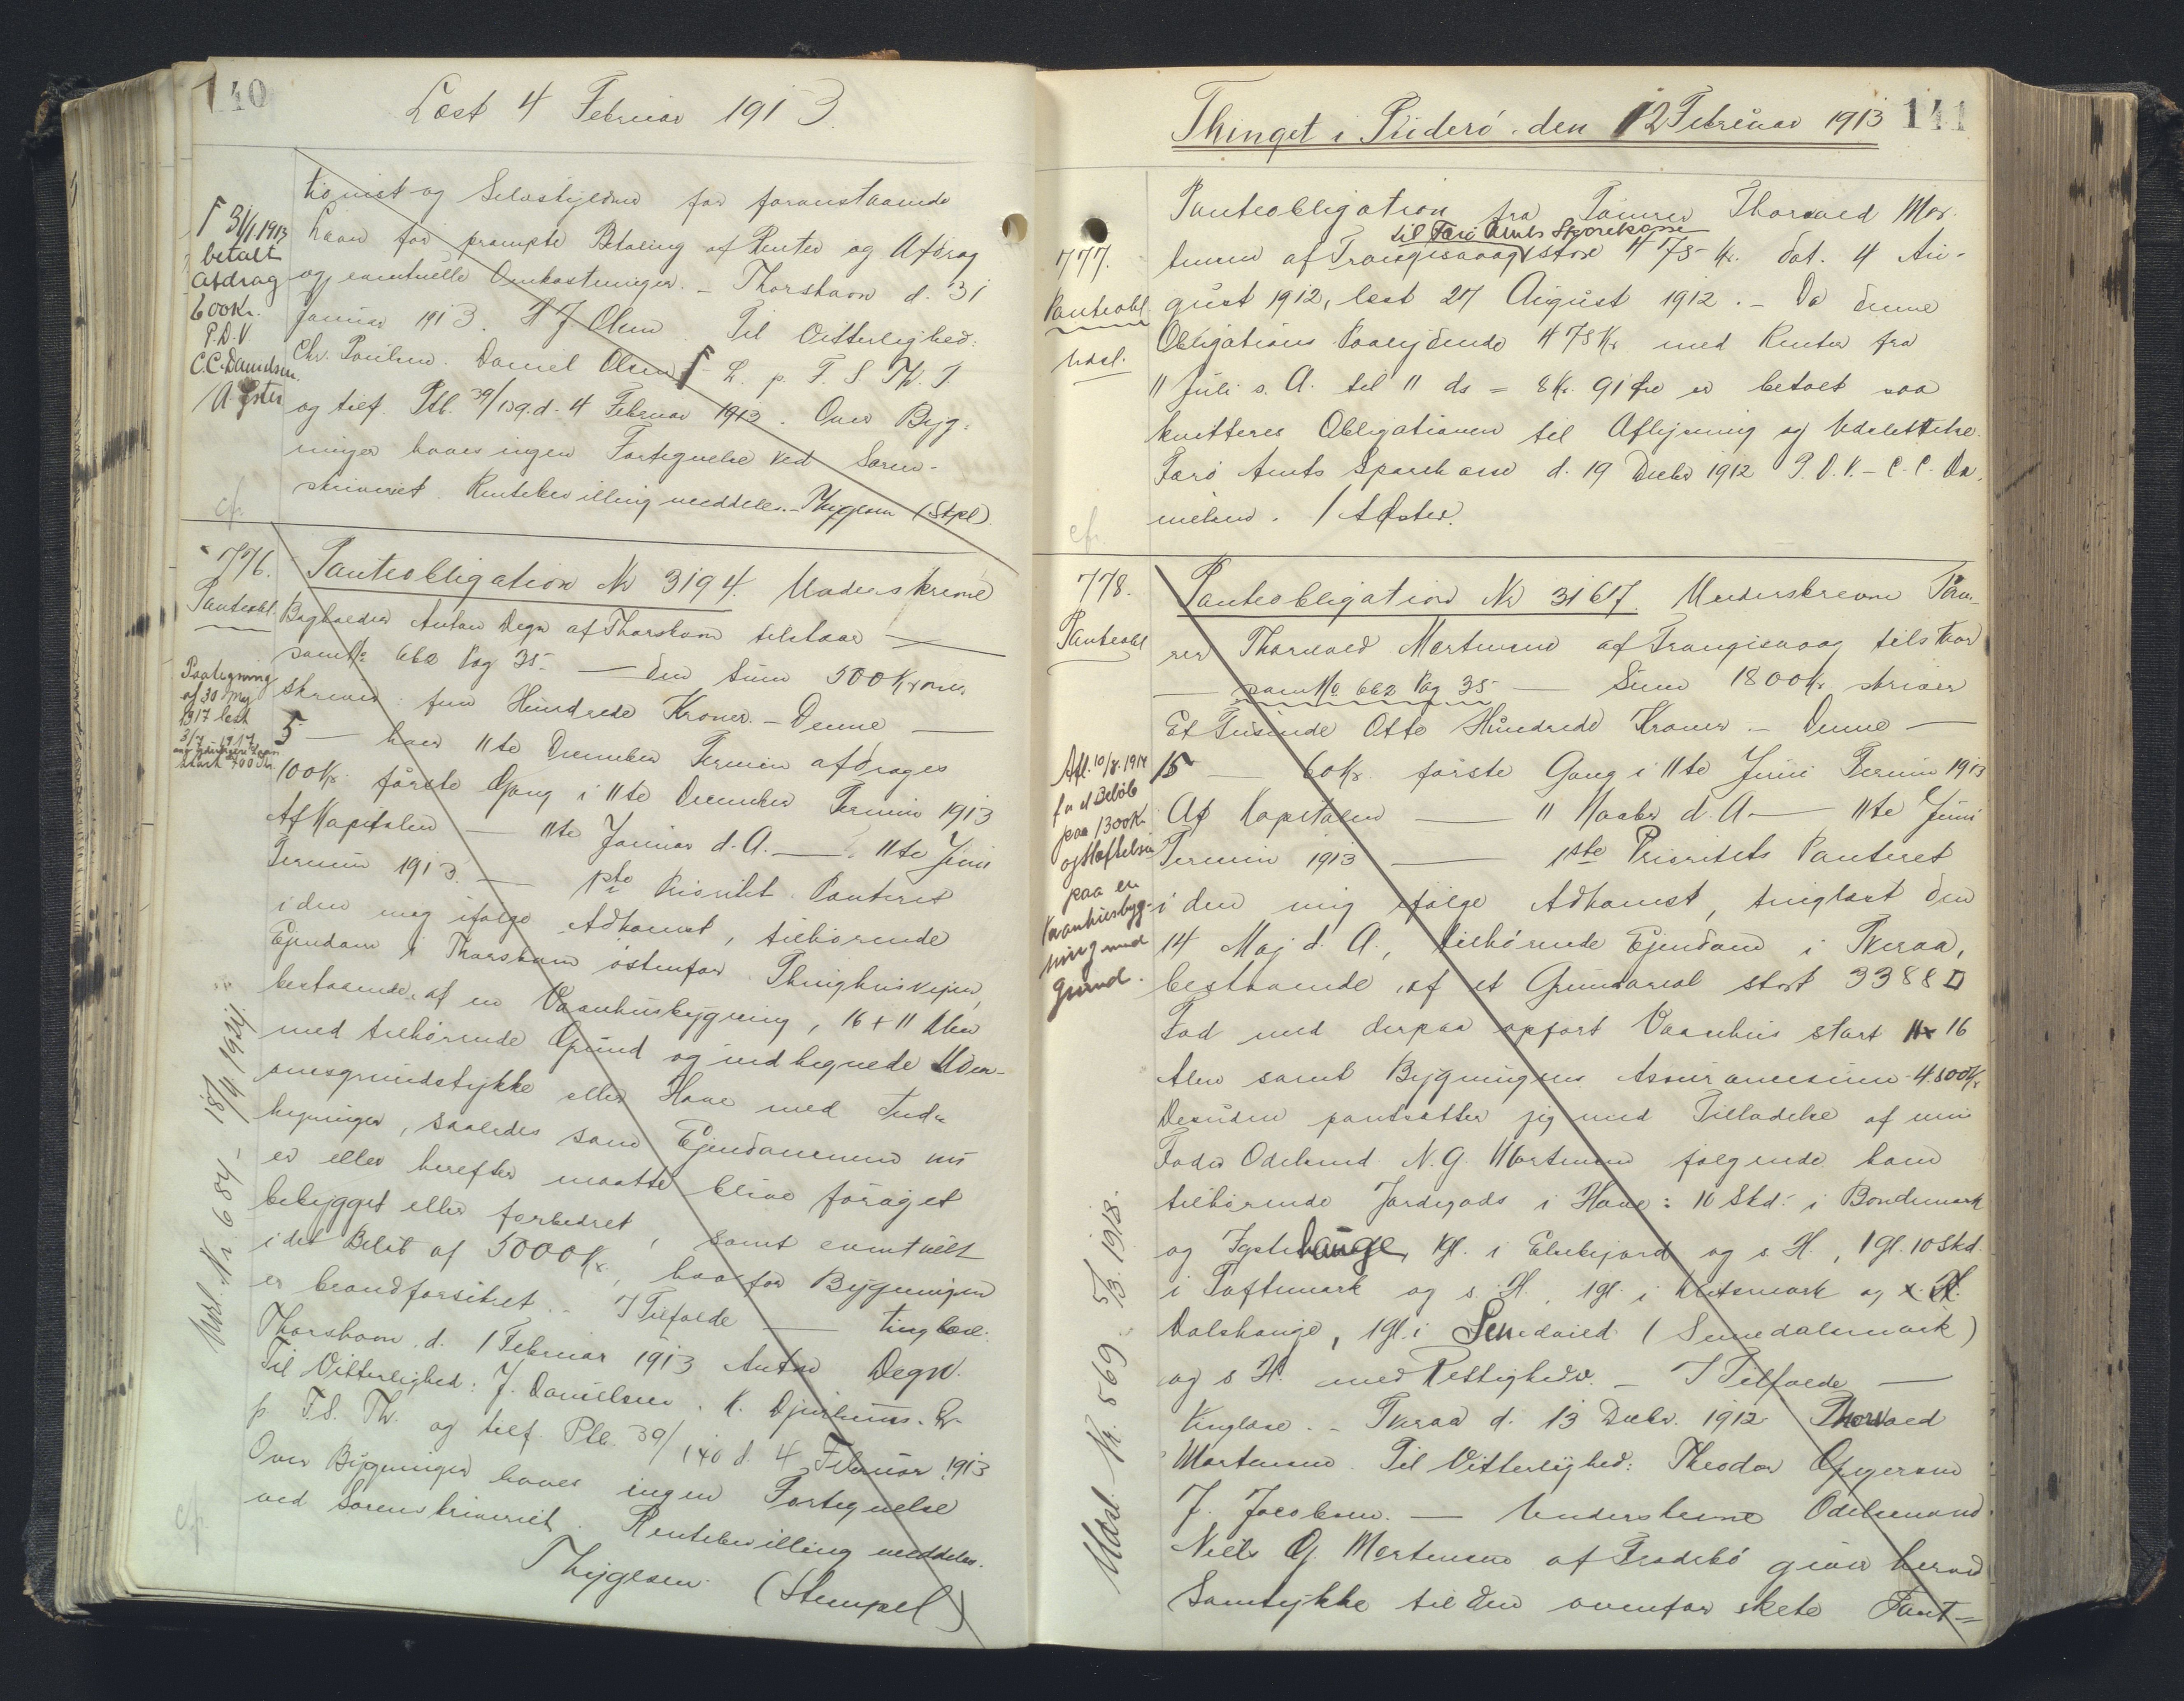 140
Læst 4 Februar 1913.
tionist og Selvskyldner for foranstaaende
Laan for prompte Betaling af Renter og Afdrag
og eventuelle Omkostninger. – Thorshavn d. 31
Januar 1913. H J Olsen. Til Vitterlighed:
Chr. Poulsen. Daniel Olsen Γ L. p. F. S Th. T
og tilf. Ptb. 39/139. d. 4 Februar 1913. Over Byg-
ninger haves ingen Fortegnelse ved Soren-
skriveriet. Rentebevilling meddeles. – Thygesen (Stpl).
Γ 31/1 1913
betalt
Afdrag
600 Kr.
P.D.V
C.C. Danielsen.
A Øster
cfr.
776.
Panteobl.
Panteobligation Nr 3194. Underskrevne
Bogholder Anton Degn af Thorshavn tilstaar —
som No 662 Pag 35. — den Sum 500 Kroner
skriver: fem Hundrede Kroner. – Denne —
5 — hver 11te December Termin afdrages
100 Kr. første Gang i 11te December Termin 1913
Af Kapitalen — 11te Januar d. A. — 11te Juni
Termin 1913. — 1ste Prioritet Panteret
i den mig ifølge Adkomst, tilhørende
Ejendom i Thorshavn østenfor Thinghusvejen,
bestaaende af en Vaanhusbygning, 16 + 11 Alen
med tilhørende Grund og indhegnede Uden-
omsgrundstykke eller Have med Ind-
hegninger, saaledes som Ejendommen nu
er eller herefter maatte blive forøget
bebygget eller forbedret, samt eventuelt
i det Beløb af 5000 Kr., hvorfor Bygningen
er brandforsikret. – I Tilfælde — tinglæs.
Thorshavn d. 1 Februar 1913 Anton Degn.
Til Vitterlighed: J. Danielsen. K. Djurhuus. L.
p. F.S. Th. og tilf. Ptb. 39/140 d. 4 Februar 1913
Over Bygninger haves ingen Fortegnelse
ved Sorenskriveriet. Rentebevilling meddeles.
Thygesen (Stempel)
Paategning
af 30 Maj
1917 læst
3/7 1917
ang. yderligere Laan
stort 700 Kr.
Udsl. Nr. 684 – 18/4 1924.
cfr.
Thinget i Tveraa den 12 Februar 1913
141
777.
Panteobl.
Udsl.
Panteobligation fra Tømrer Thorvald Mor-
til Færø Amts Sparekasse
tensen af Trangisvaag stor 475 Kr. dat. 4 Au-
gust 1912, læst 27 August 1912. – Da denne
Obligations Paalydende 475 Kr med Renter fra
11 Juli s. A. til 11 ds = 8 Kr. 91 Øre er betalt saa
kvitteres Obligationen til Aflysning og Udslettelse.
Færø Amts Sparekasse d. 19 Decbr 1912 P. D. V. – C. C. Da-
nielsen. / A Øster.
cfr.
778.
Panteobl
Panteobligation Nr 3167. Underskrevne Tøm-
rer Thorvald Mortensen af Trangisvaag tilstaar
— som No 662 Pag 35 — Sum 1800 Kr. skriver
Et Tusinde Otte Hundrede Kroner. – Denne —
15 — 60 Kr. første Gang i 11te Juni Termin 1913
Af Kapitalen — 11 Novbr d. A — 11te Juni
Termin 1913 — 1ste Prioritets Panteret
i den mig ifølge Adkomst, tinglæst den
14 Maj d. A., tilhørende Ejendom i Tveraa,
bestaaende af et Grundareal stort 3388 □
Fod med derpaa opført Vaanhus stort 11 x 16
Alen samt Bygningens Assurancesum 4.800 Kr
Desuden pantsætter jeg med Tilladelse af min
Fader Odelsmd N. G. Mortensen følgende ham
tilhørende Jordegods i Hove: 10 Skd. i Bondemark
og hauge, 1gl. i og s. H., 1 gl. 10 Skd.
i Toftemark og s. H., 1gl. i og s. H.
Dalshauge, 1gl. i (Semedalsmark)
og s. H. med Rettigheder. – I Tilfælde —
tinglæse. – Tveraa d. 13 Decbr. 1912 Thorvald
Mortensen. Til Vitterlighed: Theodor
J. Jacobsen. — Underskrevne Odelsmand
Niels G. Mortensen af Frodebø giver herved
Samtykke til den ovenfor skete Pant-
Afl. 10/8 1914
for et Beløb
paa 1300 Kr
og Hæftelsen
paa en
Vaanhusbyg-
ning med
Grund.
Udsl. Nr. 569. 5/3. 1918.